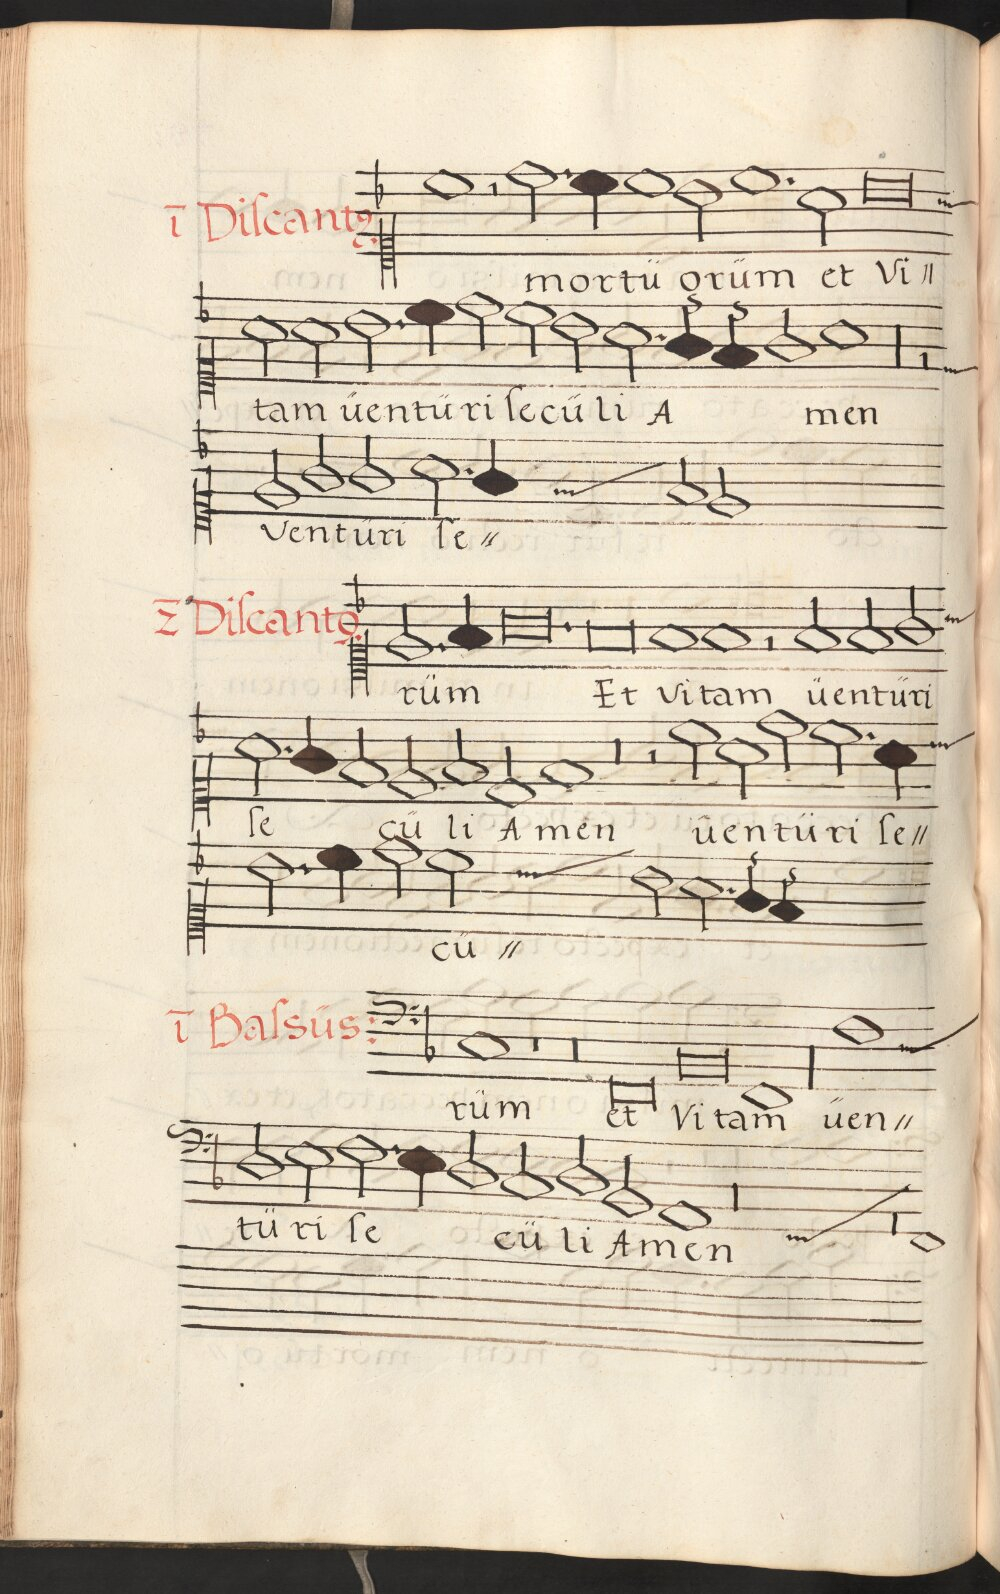 ī Discantꝰ:
mortü orüm et Vi〃
tam üentüri secüli A men
Venturi se〃
2̄ Discantꝰ:
rüm Et Vitam üentüri
se cü li Amen üentüri se〃
cü 〃
ī Bassüs:
rüm et Vitam üen〃
türi se cü li Amen